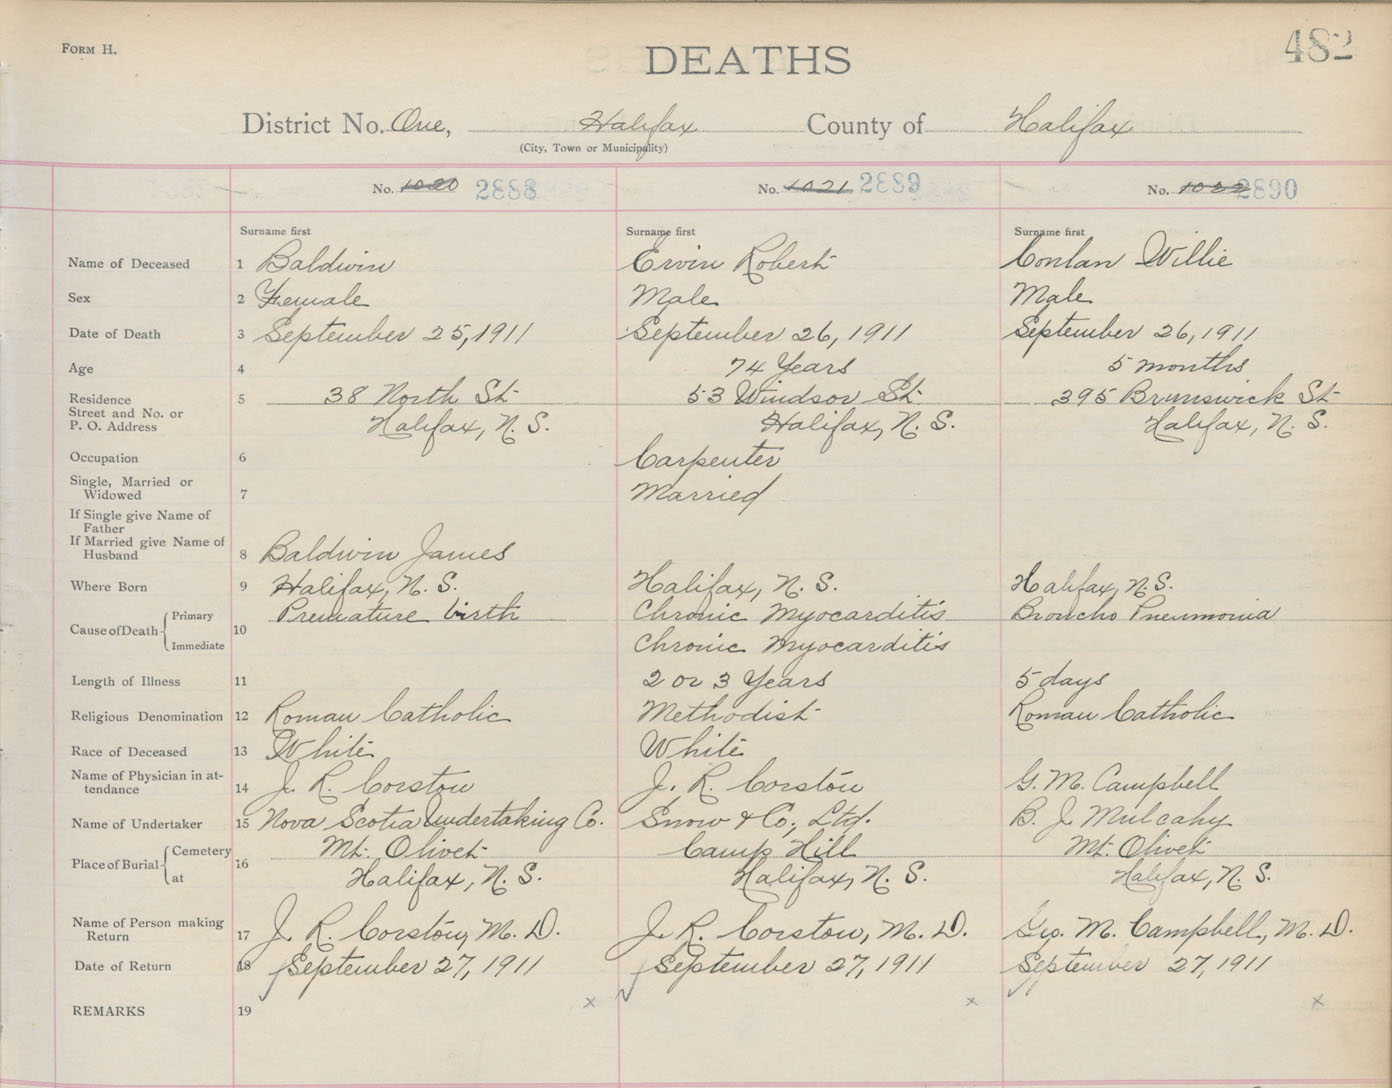 FORM H.
DEATHS
482
District No. One, Halifax County of Halifax
(City, Town or Municipality)
No. 1020 2888 No. 1021 2889 No. 1022 2890
Surname first Surname first Surname first
Name of Deceased 1 Baldwin Ervin Robert Conlan Willie
Sex 2 Female Male Male
Date of Death 3 September 25, 1911 September 26, 1911 September 26, 1911
Age 4 74 Years 5 months
Residence 5 38 North St. 53 Windsor St. 395 Brunswick St.
Street and No. or
P. O. Address Halifax, N. S. Halifax, N. S. Halifax, N. S.
Occupation 6 Carpenter
Single, Married or
Widowed 7 Married
If Single give Name of
Father
If Married give Name of
Husband 8 Baldwin James
Where Born 9 Halifax, N. S. Halifax, N. S. Halifax, N. S.
Cause of Death Primary 10 Premature birth Chronic Myocarditis Broncho Pneumonia
Immediate Chronic Myocarditis
Length of Illness 11 2 or 3 Years 5 days
Religious Denomination 12 Roman Catholic Methodist Roman Catholic
Race of Deceased 13 White White
Name of Physician in at-
tendance 14 J. R. Corston J. R. Corston G. M. Campbell
Name of Undertaker 15 Nova Scotia Undertaking Co. Snow & Co., Ltd. B. J. Mulcahy
Place of Burial Cemetery 16 Mt. Olivet Camp Hill Mt. Olivet
at Halifax, N. S. Halifax, N. S. Halifax, N. S.
Name of Person making
Return 17 J. R. Corston, M. D. J. R. Corston, M. D. Geo. M. Campbell, M. D.
Date of Return 18 September 27, 1911 September 27, 1911 September 27, 1911
REMARKS 19 x x x